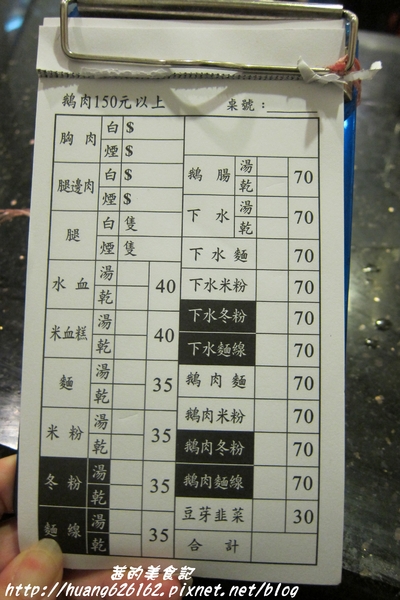 鵝肉150元以上 桌號：
胸肉 白 $
煙 $
腿邊肉 白 $
煙 $
腿 白 隻
煙 隻
水血 湯 乾 40
米血糕 湯 乾 40
麵 湯 乾 35
米粉 湯 乾 35
冬粉 湯 乾 35
麵線 湯 乾 35
鵝腸 湯 乾 70
下水 湯 乾 70
下水麵 70
下水米粉 70
下水冬粉 70
下水麵線 70
鵝肉麵 70
鵝肉米粉 70
鵝肉冬粉 70
鵝肉麵線 70
豆芽韭菜 30
合計
茜的美食記
http://huang626162.pixnet.net/blog